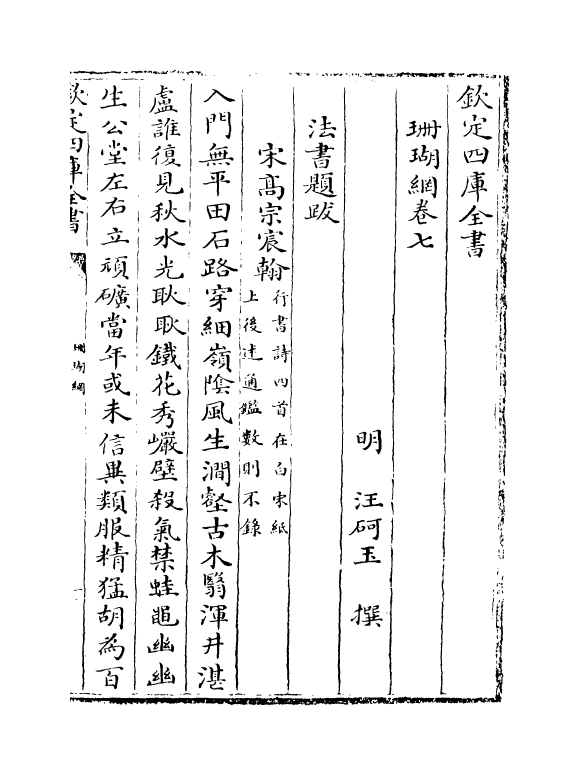 欽定四庫全書
珊瑚網卷七
明 汪砢玉 撰
法書題跋
宋髙宗宸翰
行書詩四首在白宋紙
上後述通鑑數則不錄
入門無平田石路穿細嶺隂風生澗壑古木翳潭井湛
盧誰復見秋水光耿耿鐵花秀巖壁殺氣禁蛙黽幽幽
生公堂左右立頑礦當年或未信異類服精猛胡為百
欽定四庫全書
珊瑚網
一